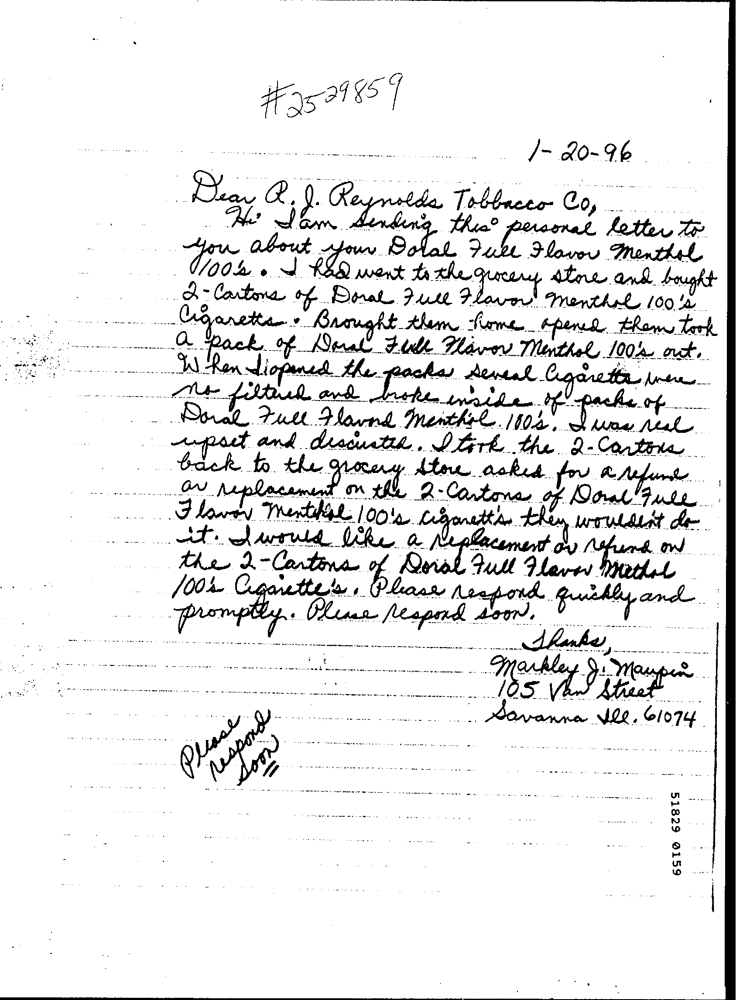 #2529859
1-20-96
Dear R. J. Reynolds Tobbacco Co,
Hi I am sending this personal letter to
you about your Doral Full Flavor Menthol
100's. I had went to the grocery store and bought
2-Cartons of Doral Full Flavor Menthol 100's
Cigaretts. Brought them home opened them took
a pack of Doral Full Flavor Menthol 100's out.
When I opened the packs several Cigaretts were
no filtered and broke inside of packs of
Doral Full Flavord Menthol 100's. I was real
upset and discusted. I took the 2-Cartons
back to the grocery store asked for a refund
or replacement on the 2-Cartons of Doral Full
Flavor Menthol 100's cigarett's they wouldesn't do
it. I would like a replacement or refund on
the 2-Cartons of Doral Full Flavor Methol
100's Cigarette's. Please respond quickly and
promptly. Please respond soon.
Thanks,
Markley J. Maupin
105 Van Street
Savanna Ill. 61074
Please
respond
soon
51829 0159